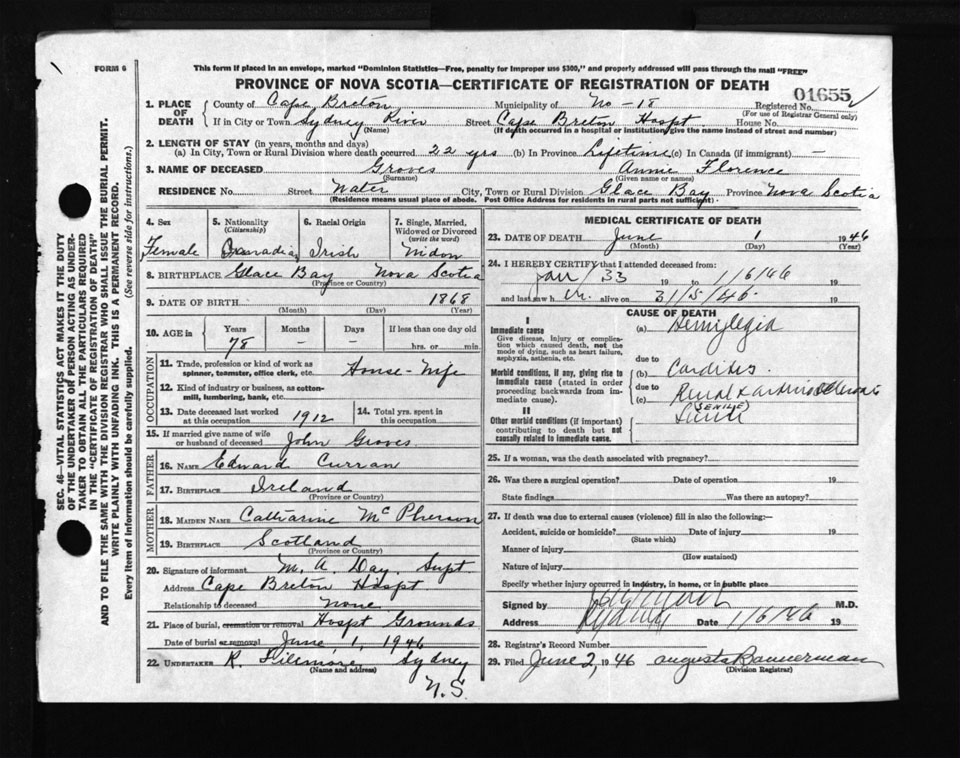 FORM 6
This form if placed in an envelope, marked "Dominion Statistics—Free, penalty for improper use $300," and properly addressed will pass through the mail "FREE"
PROVINCE OF NOVA SCOTIA—CERTIFICATE OF REGISTRATION OF DEATH
01655
1. PLACE OF DEATH
County of Cape Breton Municipality of No - 18 Registered No.
(For use of Registrar General only)
If in City or Town Sydney River Street Cape Breton Hospt House No.
(Name) (If death occurred in a hospital or institution, give the name instead of street and number)
2. LENGTH OF STAY (in years, months and days)
(a) In City, Town or Rural Division where death occurred 22 yrs (b) In Province Lifetime (c) In Canada (if immigrant) —
3. NAME OF DECEASED Groves Annie Florence
(Surname) (Given name or names)
RESIDENCE No. Street Water City, Town or Rural Division Glace Bay Province Nova Scotia
(Residence means usual place of abode. Post Office Address for residents in rural parts not sufficient)
4. Sex Female
5. Nationality (Citizenship) Canadian
6. Racial Origin Irish
7. Single, Married, Widowed or Divorced (write the word) Widow
8. BIRTHPLACE Glace Bay Nova Scotia
(Province or Country)
9. DATE OF BIRTH 1868
(Month) (Day) (Year)
10. AGE in Years Months Days If less than one day old
78 - - hrs. or min.
OCCUPATION
11. Trade, profession or kind of work as spinner, teamster, office clerk, etc. House-Wife
12. Kind of industry or business, as cotton-mill, lumbering, bank, etc.
13. Date deceased last worked at this occupation 1912
14. Total yrs. spent in this occupation
15. If married give name of wife or husband of deceased John Groves
FATHER
16. NAME Edward Curran
17. BIRTHPLACE Ireland
(Province or Country)
MOTHER
18. MAIDEN NAME Catharine McPherson
19. BIRTHPLACE Scotland
(Province or Country)
20. Signature of informant M. A. Day, Supt.
Address Cape Breton Hospt
Relationship to deceased None
21. Place of burial, cremation or removal Hospt Grounds
Date of burial or removal June, 1, 1946
22. UNDERTAKER R. Fillmore, Sydney
(Name and address)
N.S.
MEDICAL CERTIFICATE OF DEATH
23. DATE OF DEATH June 1 1946
(Month) (Day) (Year)
24. I HEREBY CERTIFY that I attended deceased from:
Jan / 33 19 to 1/6/46 19
and last saw h er alive on 31/5/46 19
CAUSE OF DEATH
I
Immediate cause
Give disease, injury or complication which caused death, not the mode of dying, such as heart failure, asphyxia, asthenia, etc.
(a) Hemiplegia
due to
Morbid conditions, if any, giving rise to immediate cause (stated in order proceeding backwards from immediate cause).
(b) Carditis
due to
(c) Renal &
II
Other morbid conditions (if important) contributing to death but not causally related to immediate cause.
(SENILE)
25. If a woman, was the death associated with pregnancy?
26. Was there a surgical operation? Date of operation 19
State findings Was there an autopsy?
27. If death was due to external causes (violence) fill in also the following:—
Accident, suicide or homicide? Date of injury 19
(State which)
Manner of injury
(How sustained)
Nature of injury
Specify whether injury occurred in industry, in home, or in public place
Signed by M.D.
Address Sydney Date 1/6/46 19
28. Registrar's Record Number
29. Filed June 2, 1946 Augusta Bannerman
(Division Registrar)
SEC. 46—VITAL STATISTICS ACT MAKES IT THE DUTY
OF THE UNDERTAKER OR PERSON ACTING AS UNDER-
TAKER TO OBTAIN ALL THE PARTICULARS REQUIRED
IN THE "CERTIFICATE OF REGISTRATION OF DEATH"
AND TO FILE THE SAME WITH THE DIVISION REGISTRAR WHO SHALL ISSUE THE BURIAL PERMIT.
WRITE PLAINLY WITH UNFADING INK. THIS IS A PERMANENT RECORD.
Every item of information should be carefully supplied. (See reverse side for instructions).